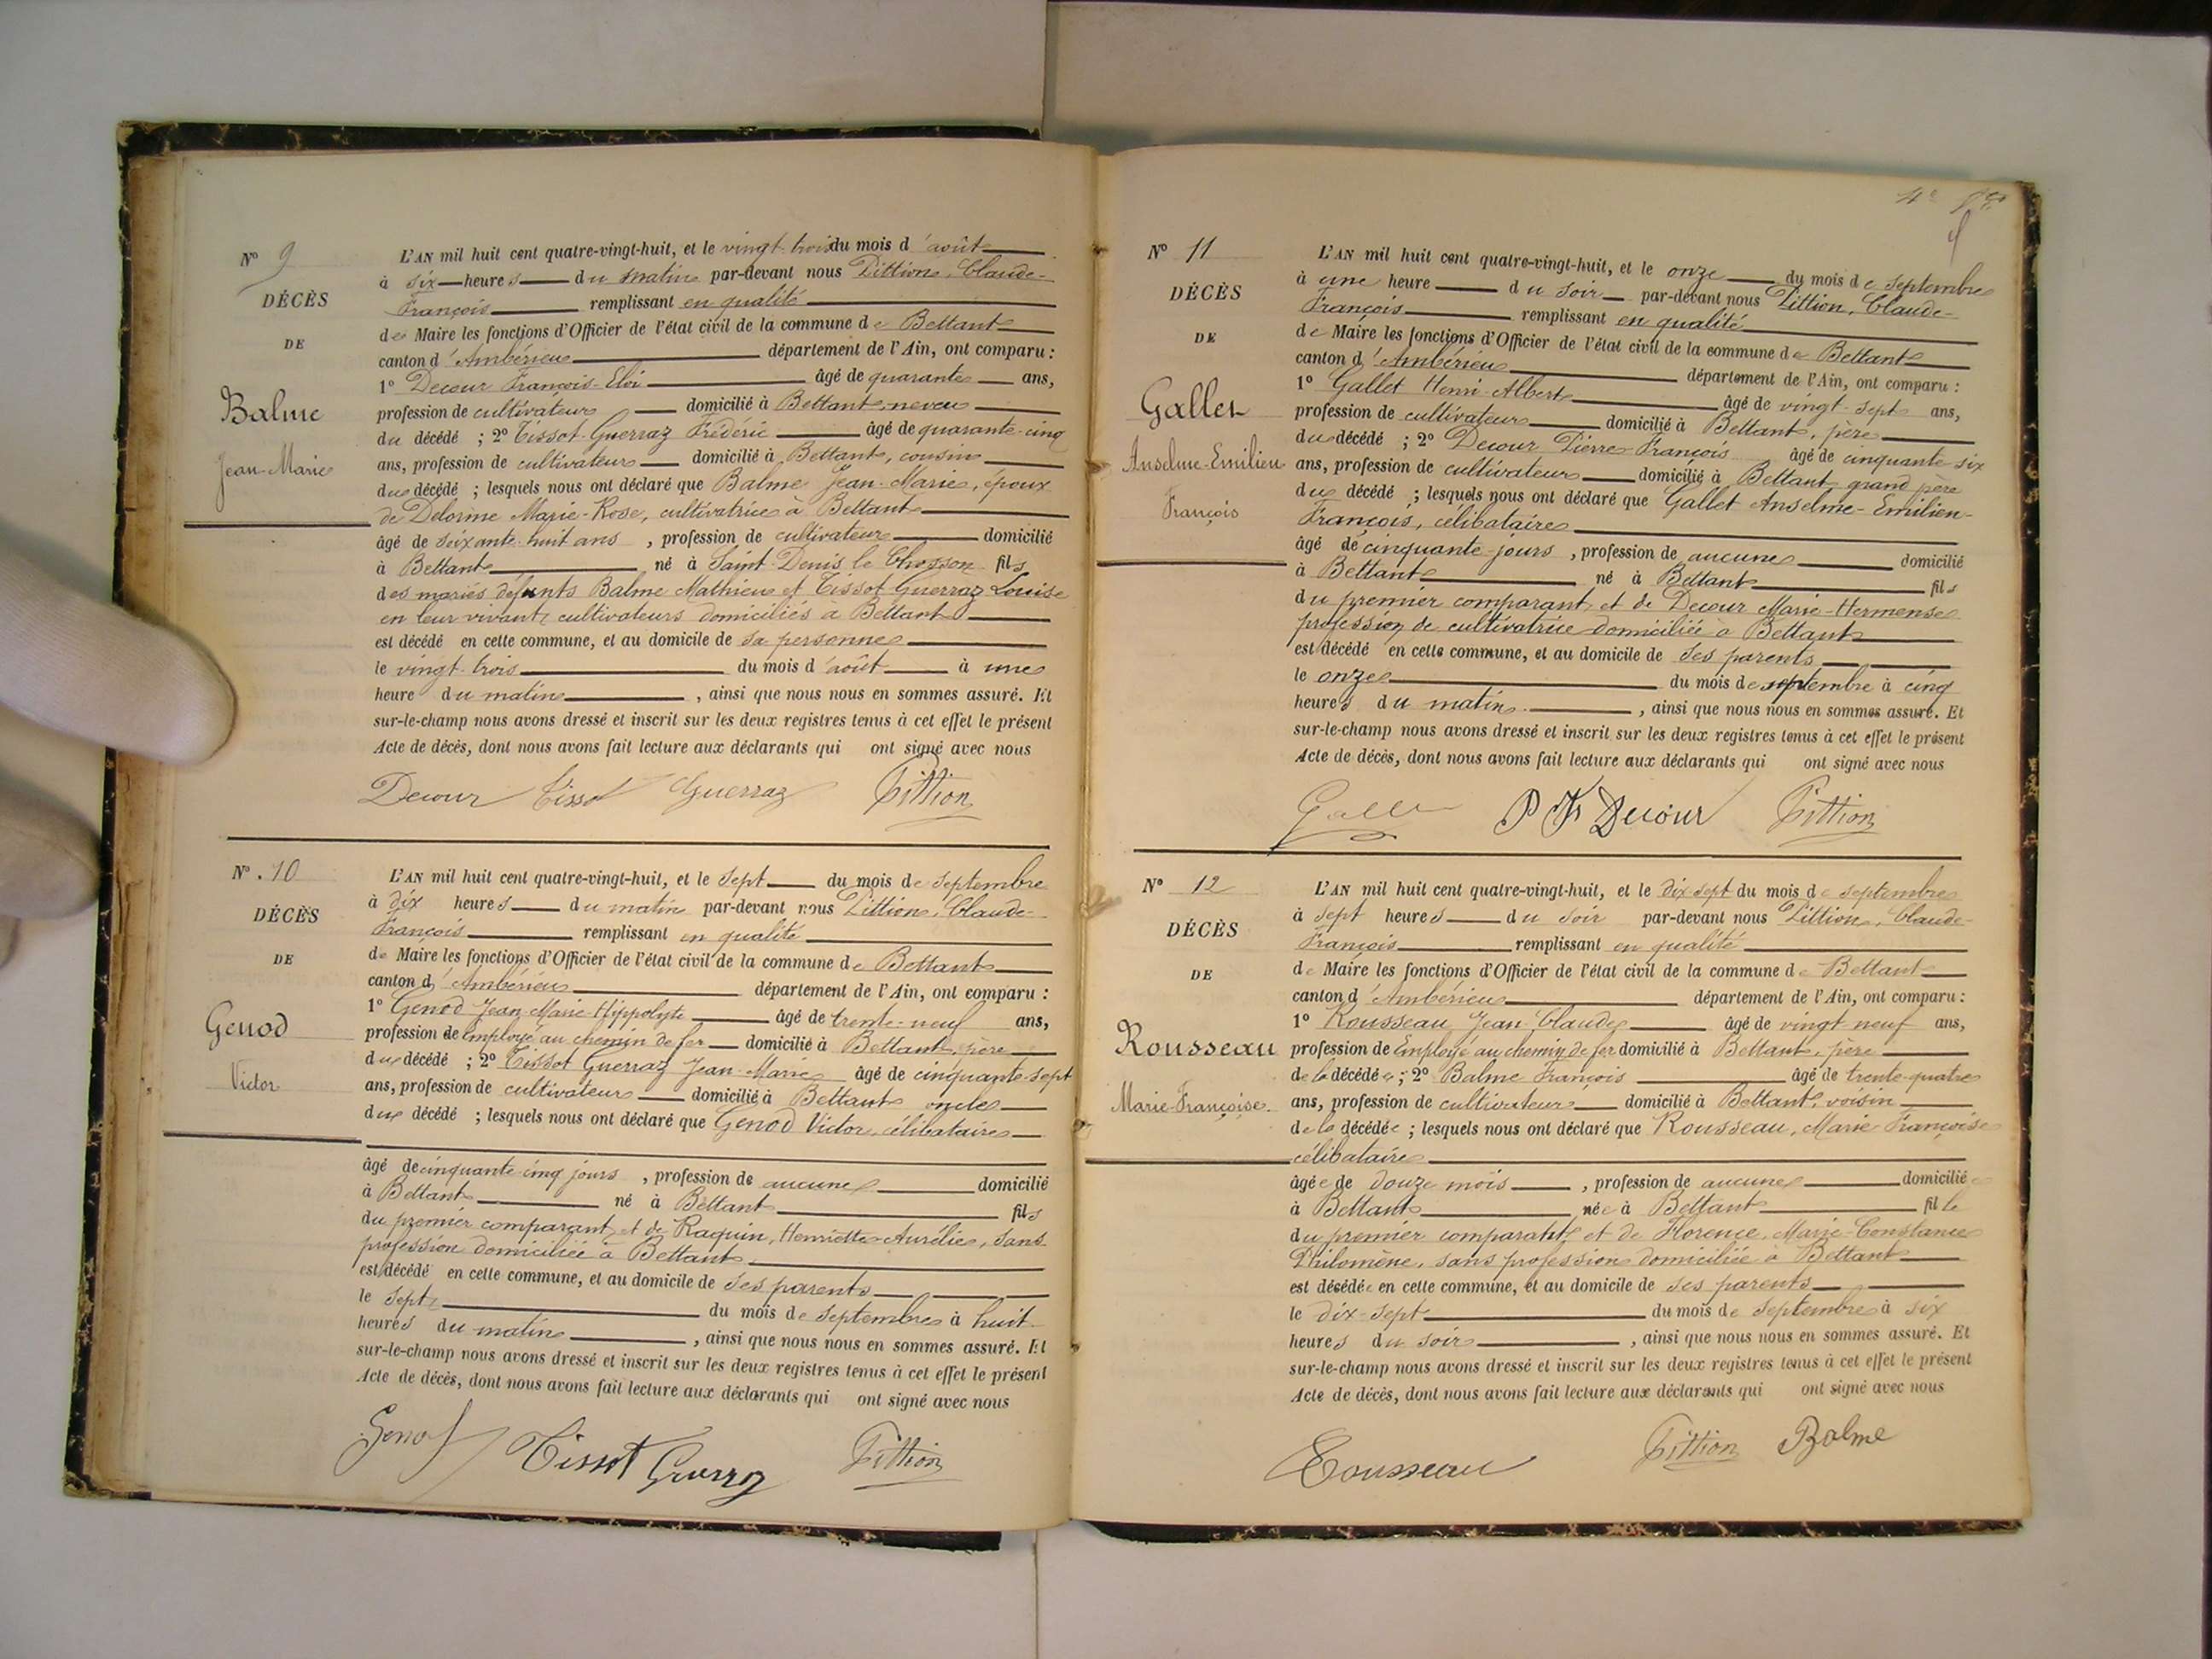 Nº 9
DÉCÈS
DE
Balme
Jean-Marie
L'AN mil huit cent quatre-vingt-huit, et le vingt-trois du mois d'août
à six heures du matin par-devant nous Pittion, Claude-
François remplissant en qualité
de Maire les fonctions d'Officier de l'état civil de la commune de Bettant
canton d'Ambérieu département de l'Ain, ont comparu :
1º Decour François-Eloi âgé de quarante ans,
profession de cultivateur domicilié à Bettant, neveu
du décédé ; 2º Tissot-Guerraz Frédéric âgé de quarante-cinq
ans, profession de cultivateur domicilié à Bettant, cousin
du décédé ; lesquels nous ont déclaré que Balme Jean-Marie, époux
de Delorme Marie-Rose, cultivatrice à Bettant
âgé de soixante-huit ans , profession de cultivateur domicilié
à Bettant né à Saint-Denis le Chosson fils
des mariés défunts Balme Mathieu et Tissot Guerraz Louise
en leur vivant, cultivateurs domiciliés à Bettant
est décédé en cette commune, et au domicile de sa personne
le vingt-trois du mois d'août à une
heure du matin , ainsi que nous nous en sommes assuré. Et
sur-le-champ nous avons dressé et inscrit sur les deux registres tenus à cet effet le présent
Acte de décès, dont nous avons fait lecture aux déclarants qui ont signé avec nous
Decour Tissot Guerraz Pittion
Nº 10
DÉCÈS
DE
Genod
Victor
L'AN mil huit cent quatre-vingt-huit, et le sept du mois de septembre
à dix heures du matin par-devant nous Pittion, Claude-
François remplissant en qualité
de Maire les fonctions d'Officier de l'état civil de la commune de Bettant
canton d'Ambérieu département de l'Ain, ont comparu :
1º Genod Jean-Marie Hippolyte âgé de trente-neuf ans,
profession de employé au chemin de fer domicilié à Bettant, père
du décédé ; 2º Tissot Guerraz Jean-Marie âgé de cinquante-sept
ans, profession de cultivateur domicilié à Bettant oncle
du décédé ; lesquels nous ont déclaré que Genod Victor, célibataire
âgé de cinquante-cinq jours , profession de aucune domicilié
à Bettant né à Bettant fils
du premier comparant, et de Raquin, Henriette-Aurélie, sans
profession domiciliée à Bettant
est décédé en cette commune, et au domicile de ses parents
le sept du mois de septembre à huit
heures du matin , ainsi que nous nous en sommes assuré. Et
sur-le-champ nous avons dressé et inscrit sur les deux registres tenus à cet effet le présent
Acte de décès, dont nous avons fait lecture aux déclarants qui ont signé avec nous
Genod Tissot Guerraz Pittion
Nº 11
DÉCÈS
DE
Gallet
Anselme-Emilien
François
L'AN mil huit cent quatre-vingt-huit, et le onze du mois de septembre
à une heure du soir par-devant nous Pittion, Claude-
François remplissant en qualité
de Maire les fonctions d'Officier de l'état civil de la commune de Bettant
canton d'Ambérieu département de l'Ain, ont comparu :
1º Gallet Henri-Albert âgé de vingt-sept ans,
profession de cultivateur domicilié à Bettant, père
du décédé ; 2º Decour Pierre-François âgé de cinquante-six
ans, profession de cultivateur domicilié à Bettant grand père
du décédé ; lesquels nous ont déclaré que Gallet Anselme-Emilien-
François, célibataire
âgé de cinquante-jours , profession de aucune domicilié
à Bettant né à Bettant fils
du premier comparant, et de Decour Marie-Hermense
profession de cultivatrice domiciliée à Bettant
est décédé en cette commune, et au domicile de ses parents
le onze du mois de septembre à cinq
heures du matin , ainsi que nous nous en sommes assuré. Et
sur-le-champ nous avons dressé et inscrit sur les deux registres tenus à cet effet le présent
Acte de décès, dont nous avons fait lecture aux déclarants qui ont signé avec nous
Gallet P F Decour Pittion
Nº 12
DÉCÈS
DE
Rousseau
Marie-Françoise
L'AN mil huit cent quatre-vingt-huit, et le dix sept du mois de septembre
à sept heures du soir par-devant nous Pittion, Claude-
François remplissant en qualité
de Maire les fonctions d'Officier de l'état civil de la commune de Bettant
canton d'Ambérieu département de l'Ain, ont comparu :
1º Rousseau Jean Claude âgé de vingt neuf ans,
profession de Employé au chemin de fer domicilié à Bettant, père
de la décédée ; 2º Balme François âgé de trente-quatre
ans, profession de cultivateur domicilié à Bettant, voisin
de la décédée ; lesquels nous ont déclaré que Rousseau, Marie Françoise
célibataire
âgée de douze mois , profession de aucune domiciliée
à Bettant née à Bettant fille
du premier comparant, et de Florence, Marie-Constance
Philomène, sans profession domiciliée à Bettant
est décédée en cette commune, et au domicile de ses parents
le dix-sept du mois de septembre à six
heures du soir , ainsi que nous nous en sommes assuré. Et
sur-le-champ nous avons dressé et inscrit sur les deux registres tenus à cet effet le présent
Acte de décès, dont nous avons fait lecture aux déclarants qui ont signé avec nous
Rousseau Pittion Balme